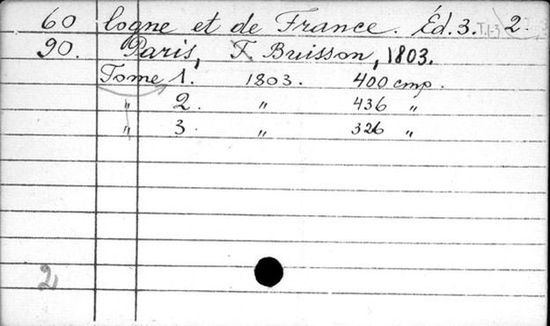 60 logne et de France. Éd. 3. T.1-3 2.
90. Paris, F. Buisson, 1803.
Tome 1. 1803. 400 стр.
„ 2. „ 436 „
„ 3. „ 326 „
2